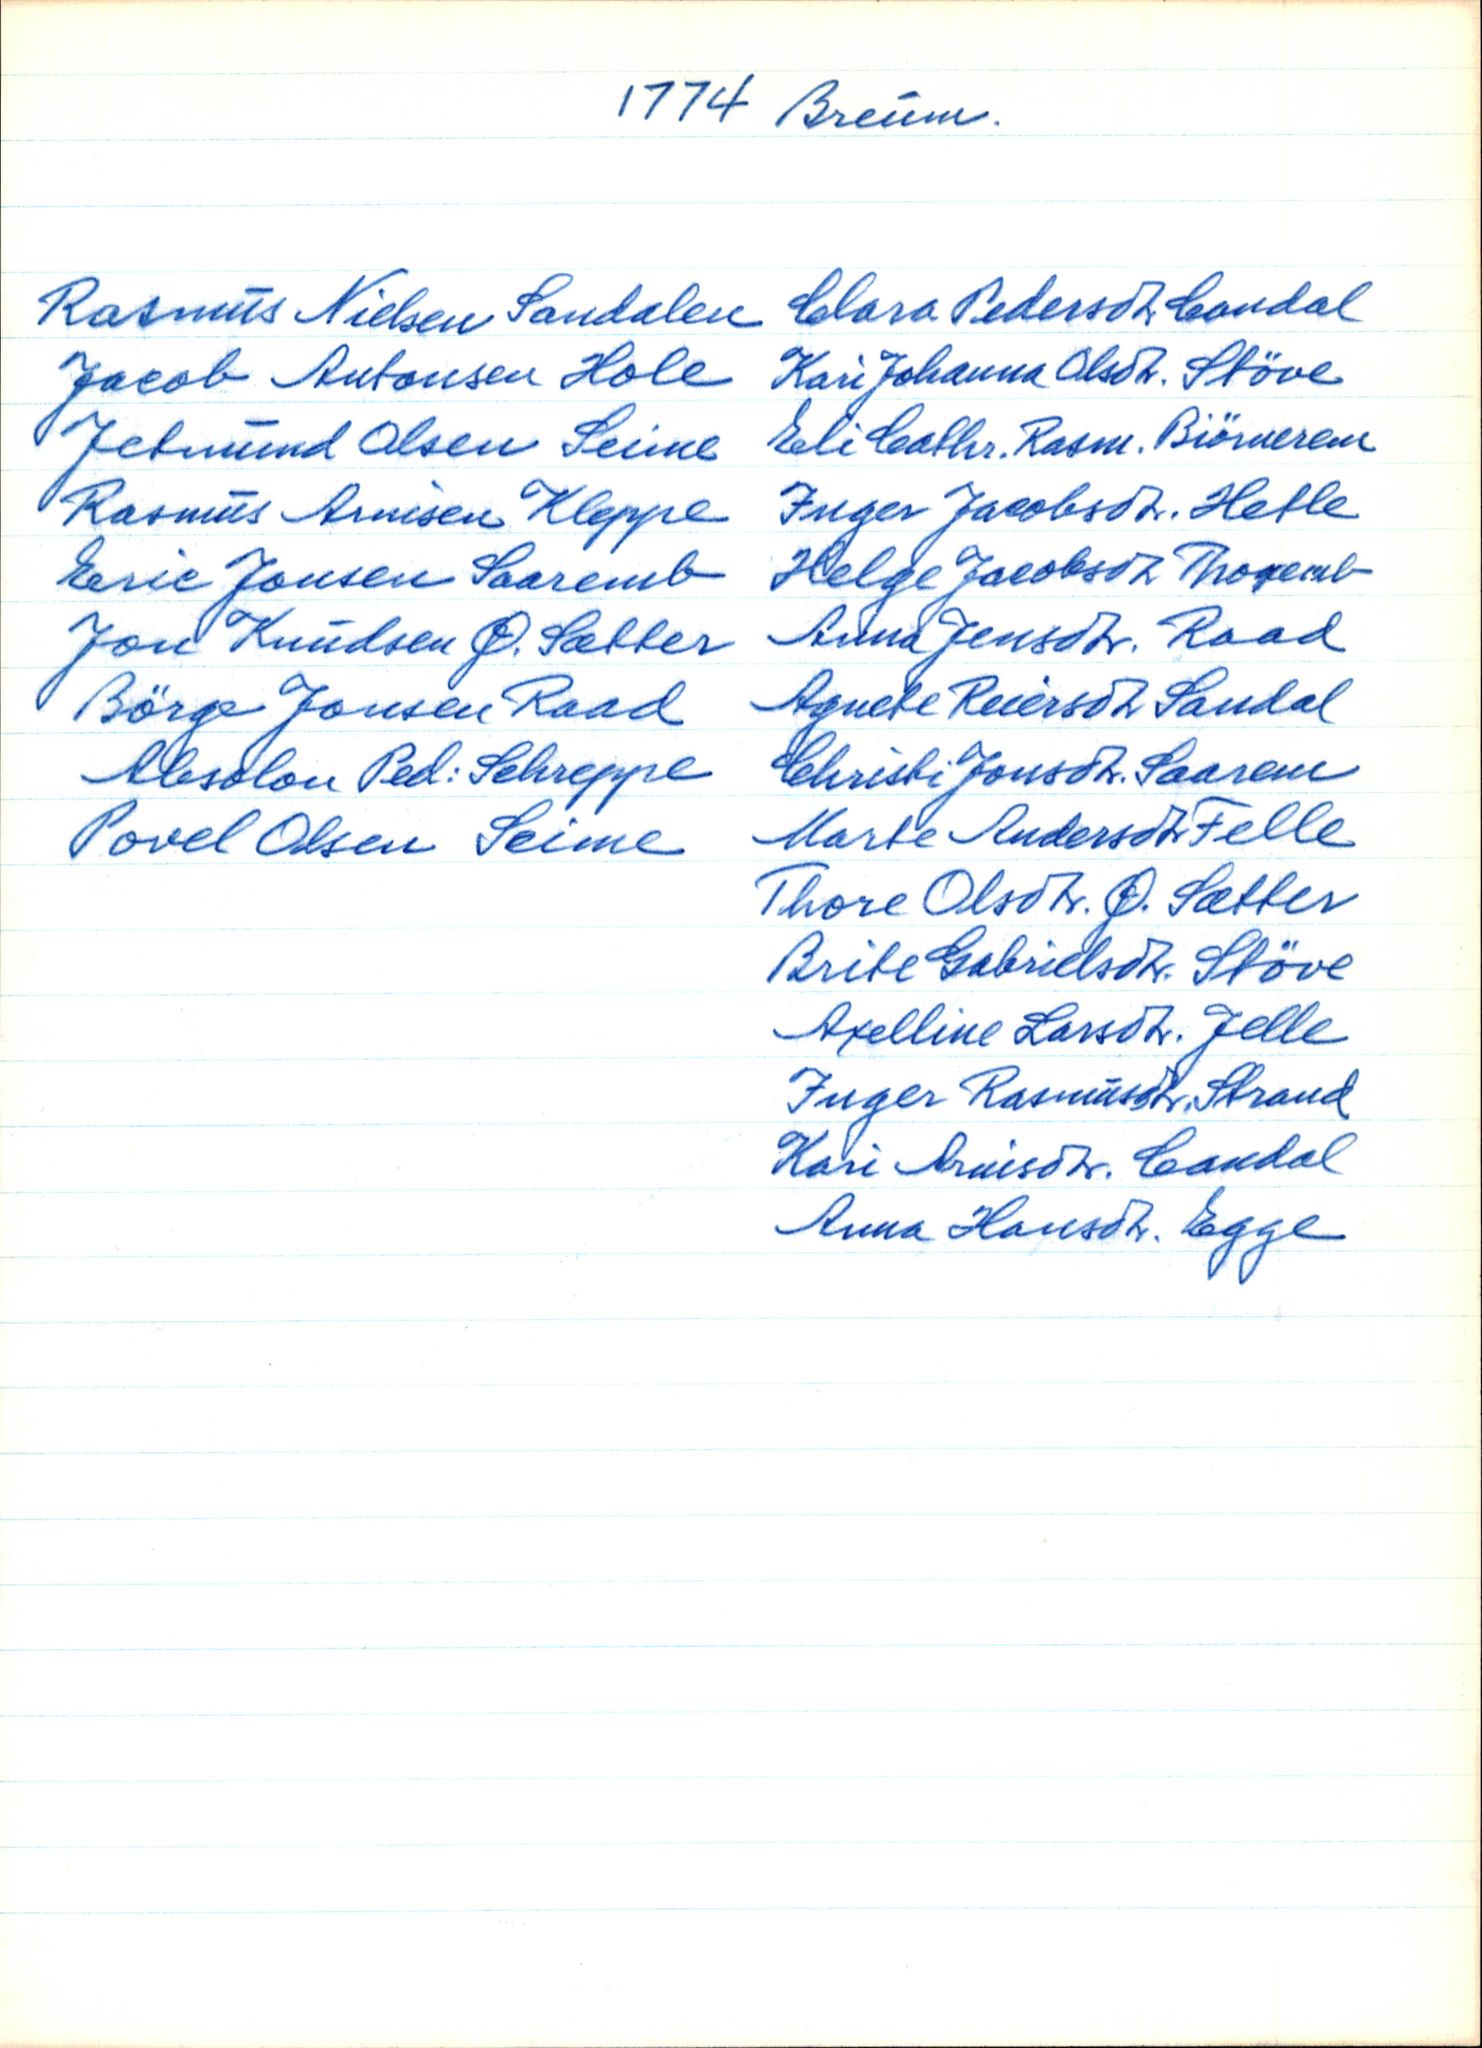 1774 Breüm.
Rasmüs Nielsen Sandalen
Jacob Antonsen Hole
Jetmünd Olsen Seime
Rasmüs Arnisen Kleppe
Eric Jonsen Saaremb
Jon Knüdsen Ø. Sætter
Börge Jonsen Raad
Absolon Ped: Schreppe
Povel Olsen Seime
Clara Pedersdtr. Candal
Kari Johanna Olsdtr. Stöve
Eli Cathr. Rasm. Biörnerem
Inger Jacobsdtr. Hetle
Helge Jacobsdtr.
Anna Jensdtr. Raad
Agnete Reiersdtr Sandal
Christi Jonsdtr. Saarem
Marte Andersdtr. Felle
Thore Olsdtr. Ø. Sætter
Brite Gabrielsdtr. Stöve
Axelline Larsdtr. Jelle
Inger Rasmüsdtr. Strand
Kari Arnisdtr. Candal
Anna Hansdtr. Egge